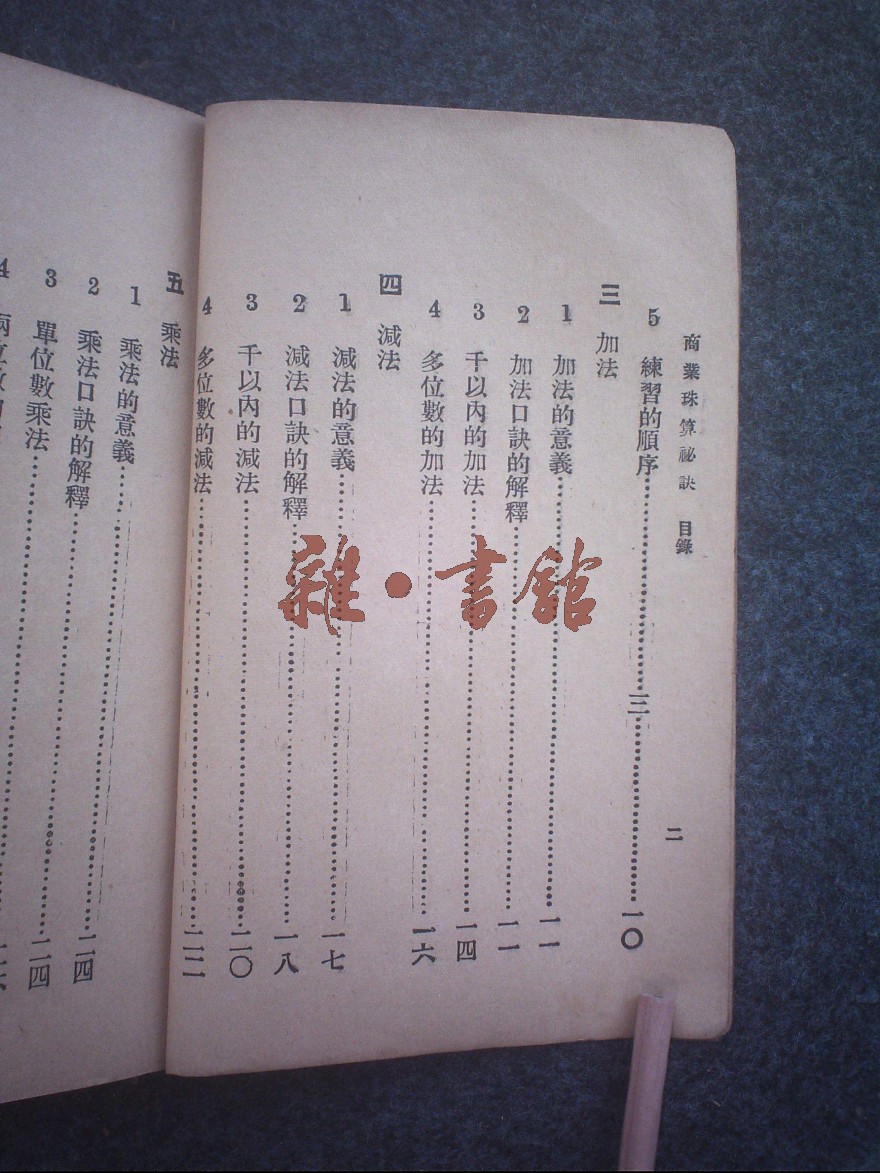 商業珠算祕訣 目錄 二
5 練習的順序……三……一〇
三 加法
1 加法的意義……一一
2 加法口訣的解釋……一一
3 千以內的加法……一四
4 多位數的加法……一六
四 減法
1 減法的意義……一七
2 減法口訣的解釋……一八
3 千以內的減法……二〇
4 多位數的減法……二二
五 乘法
1 乘法的意義……
2 乘法口訣的解釋……二四
3 單位數乘法……二四
4
雜·書館